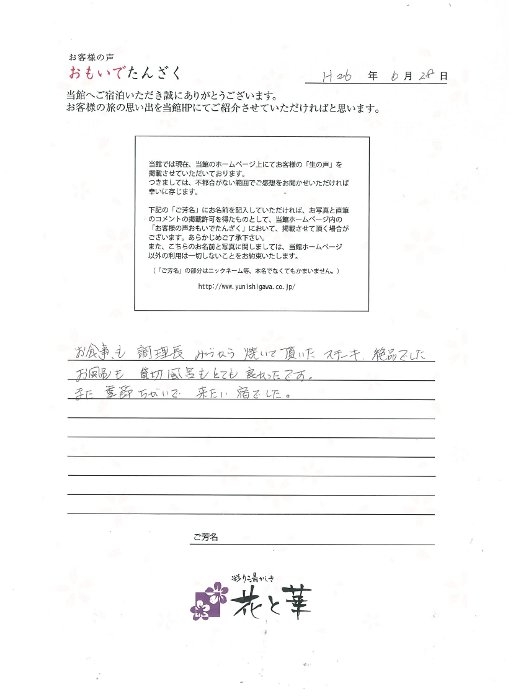 お客様の声
おもいでたんざく
H26 年 6 月 28 日
当館へご宿泊いただき誠にありがとうございます。
お客様の旅の思い出を当館HPにてご紹介させていただければと思います。
当館では現在、当館のホームページ上にてお客様の「生の声」を
掲載させていただいております。
つきましては、不都合がない範囲でご感想をお聞かせいただければ
幸いに存じます。
下記の「ご芳名」にお名前を記入していただければ、お写真と直筆
のコメントの掲載許可を得たものとして、当館ホームページ内の
「お客様の声おもいでたんざく」において、掲載させて頂く場合が
ございます。あらかじめご了承下さい。
また、こちらのお名前と写真に関しましては、当館ホームページ
以外の利用は一切しないことをお約束いたします。
(「ご芳名」の部分はニックネーム等、本名でなくてもかまいません。)
http://www.yunishigawa.co.jp/
お食事も 調理長 焼いて頂いた ステーキ 絶品でした
お風呂も 貸切風呂もとても良かったです。
また 季節ちがいで 来たい 宿でした。
ご芳名
彩り湯かしき
花と華